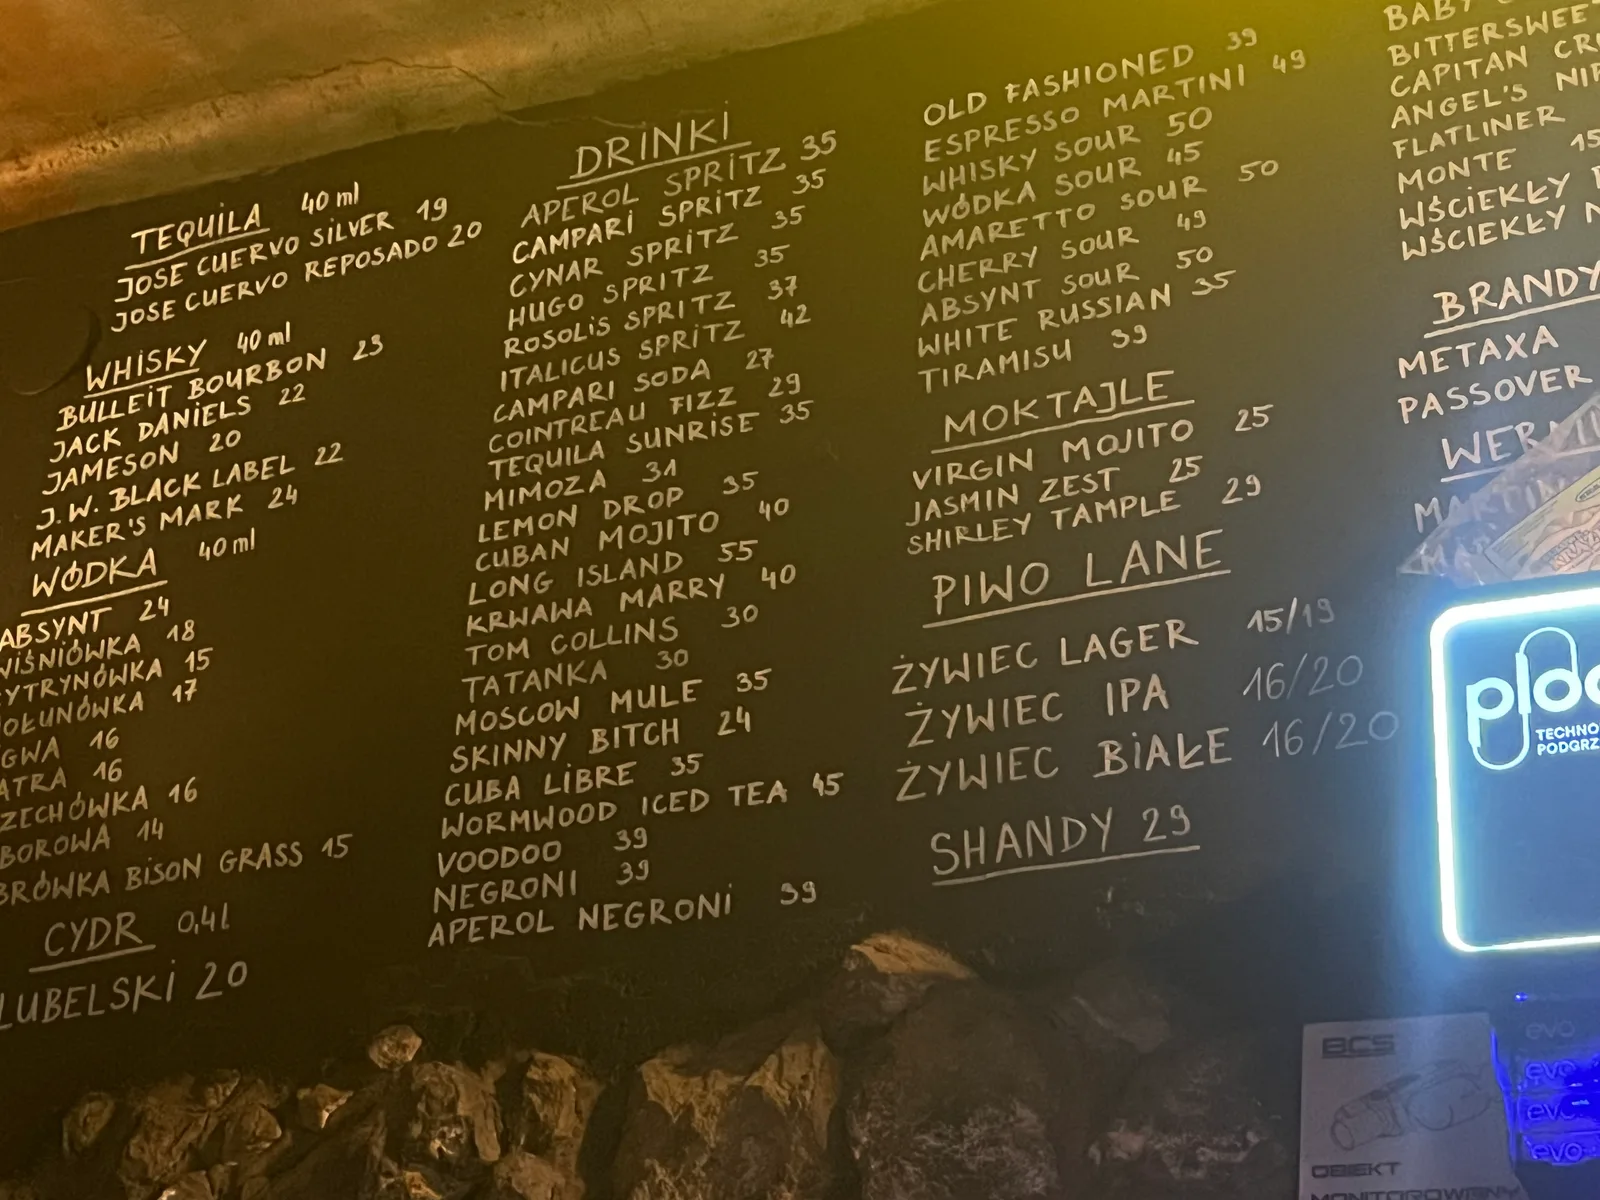 TEQUILA 40 ml
JOSE CUERVO SILVER 19
JOSE CUERVO REPOSADO 20
WHISKY 40 ml
BULLEIT BOURBON 23
JACK DANIELS 22
JAMESON 20
J.W. BLACK LABEL 22
MAKER'S MARK 24
WÓDKA 40 ml
ABSYNT 24
WIŚNIÓWKA 18
YTRYNÓWKA 15
OŁUNÓWKA 17
GWA 16
ATRA 16
ZECHÓWKA 16
BOROWA 14
BRÓWKA BISON GRASS 15
CYDR 0,4l
LUBELSKI 20
DRINKI
APEROL SPRITZ 35
CAMPARI SPRITZ 35
CYNAR SPRITZ 35
HUGO SPRITZ 35
ROSOLIS SPRITZ 37
ITALICUS SPRITZ 42
CAMPARI SODA 27
COINTREAU FIZZ 29
TEQUILA SUNRISE 35
MIMOZA 31
LEMON DROP 35
CUBAN MOJITO 40
LONG ISLAND 55
KRWAWA MARRY 40
TOM COLLINS 30
TATANKA 30
MOSCOW MULE 35
SKINNY BITCH 24
CUBA LIBRE 35
WORMWOOD ICED TEA 45
VOODOO 39
NEGRONI 39
APEROL NEGRONI 39
OLD FASHIONED 39
ESPRESSO MARTINI 49
WHISKY SOUR 50
WÓDKA SOUR 45
AMARETTO SOUR 50
CHERRY SOUR 49
ABSYNT SOUR 50
WHITE RUSSIAN 35
TIRAMISU 39
MOKTAJLE
VIRGIN MOJITO 25
JASMIN ZEST 25
SHIRLEY TAMPLE 29
PIWO LANE
ŻYWIEC LAGER 15/19
ŻYWIEC IPA 16/20
ŻYWIEC BIAŁE 16/20
SHANDY 29
BABY
BITTERSWEE
CAPITAN CR
ANGEL'S NIP
FLATLINER
MONTE 15
WŚCIEKŁY
WŚCIEKŁY
BRANDY
METAXA
PASSOVER
WERM
MARTIN
ploo
TECHNO
PODGRZ
BCS
OBIEKT
MONITOROWANY
evo
evo
evo
evo